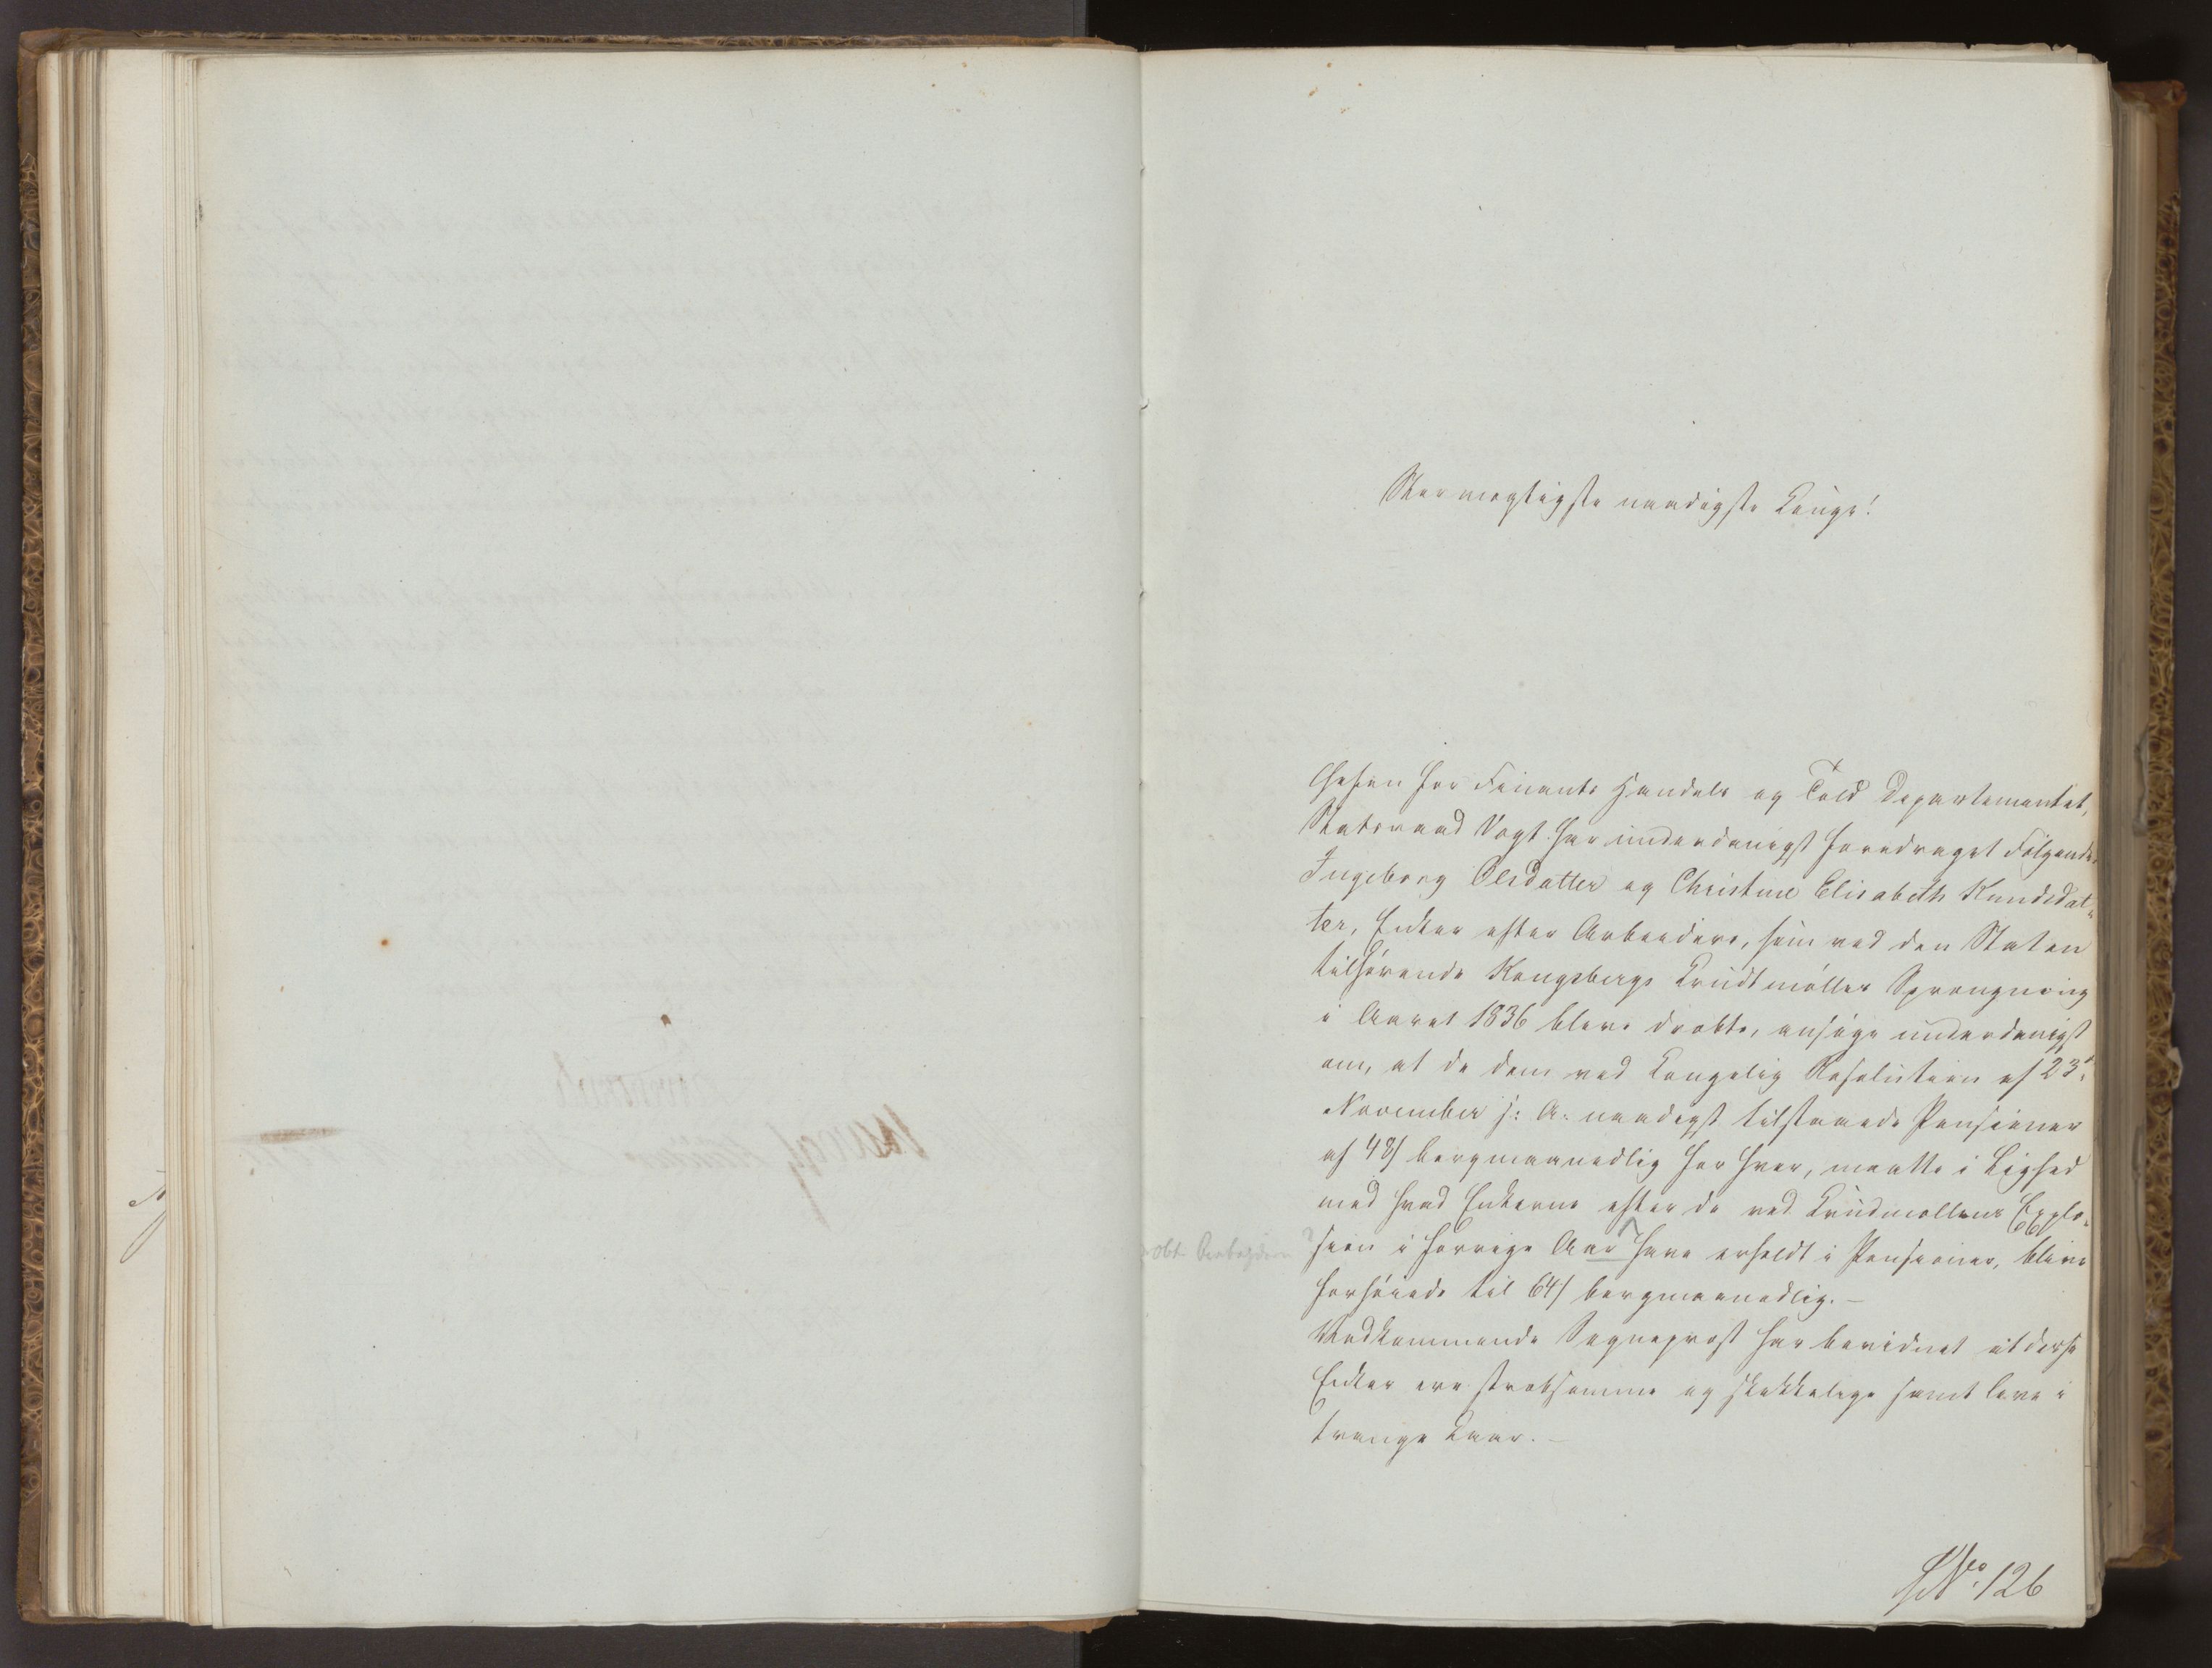 Stormægtigste naadigste Konge!
Chefen for Finants Handels og Told Departementet,
Statsraad Vogt har underdanigst foredraget Følgende:
Ingeborg Olsdatter og Christine Elisabeth Knudsdat„
ter, Enker efter Arbeidere, som ved den Staten
tilhørende Kongsbergs Krudtmølles Sprængning
i Aaret 1836 bleve dræbte, ansøge underdanigst
om, at de dem ved Kongelig Resolution af 23d
November s: A: naadigst tilstaaede Pensioner
af 48ß bergmaanedlig for hver, maatte i Lighed
med hvad Enkerne efter de ved Krudmøllens Explo„
sion i forrige Aar have erholdt i Pensioner, blive
forhøiede til 64ß bergmaanedlig.—
Vedkommende Sogneprest har bevidnet at disse
Enker ere stræbsomme og skikkelige samt leve i
trange Kaar.—
No 126